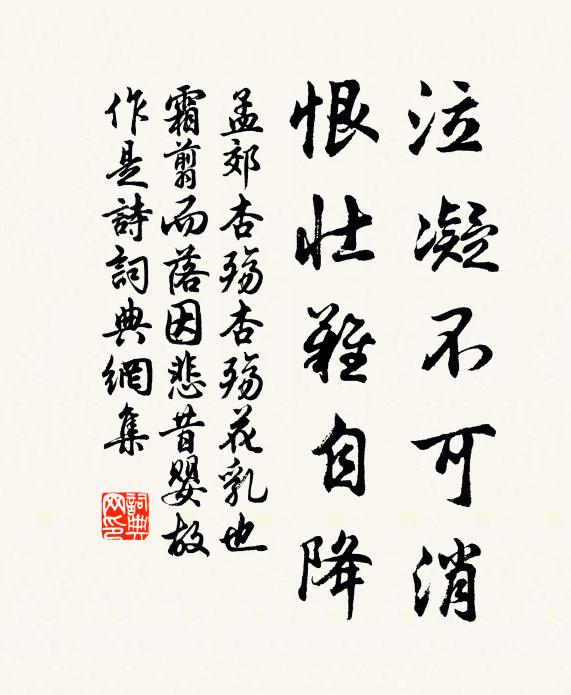 泣凝不可消
恨壮難自降
孟郊杏殤杏殤花乳也
霜翦而落因悲昔嬰故
作是詩詞典網集
詞典
网印